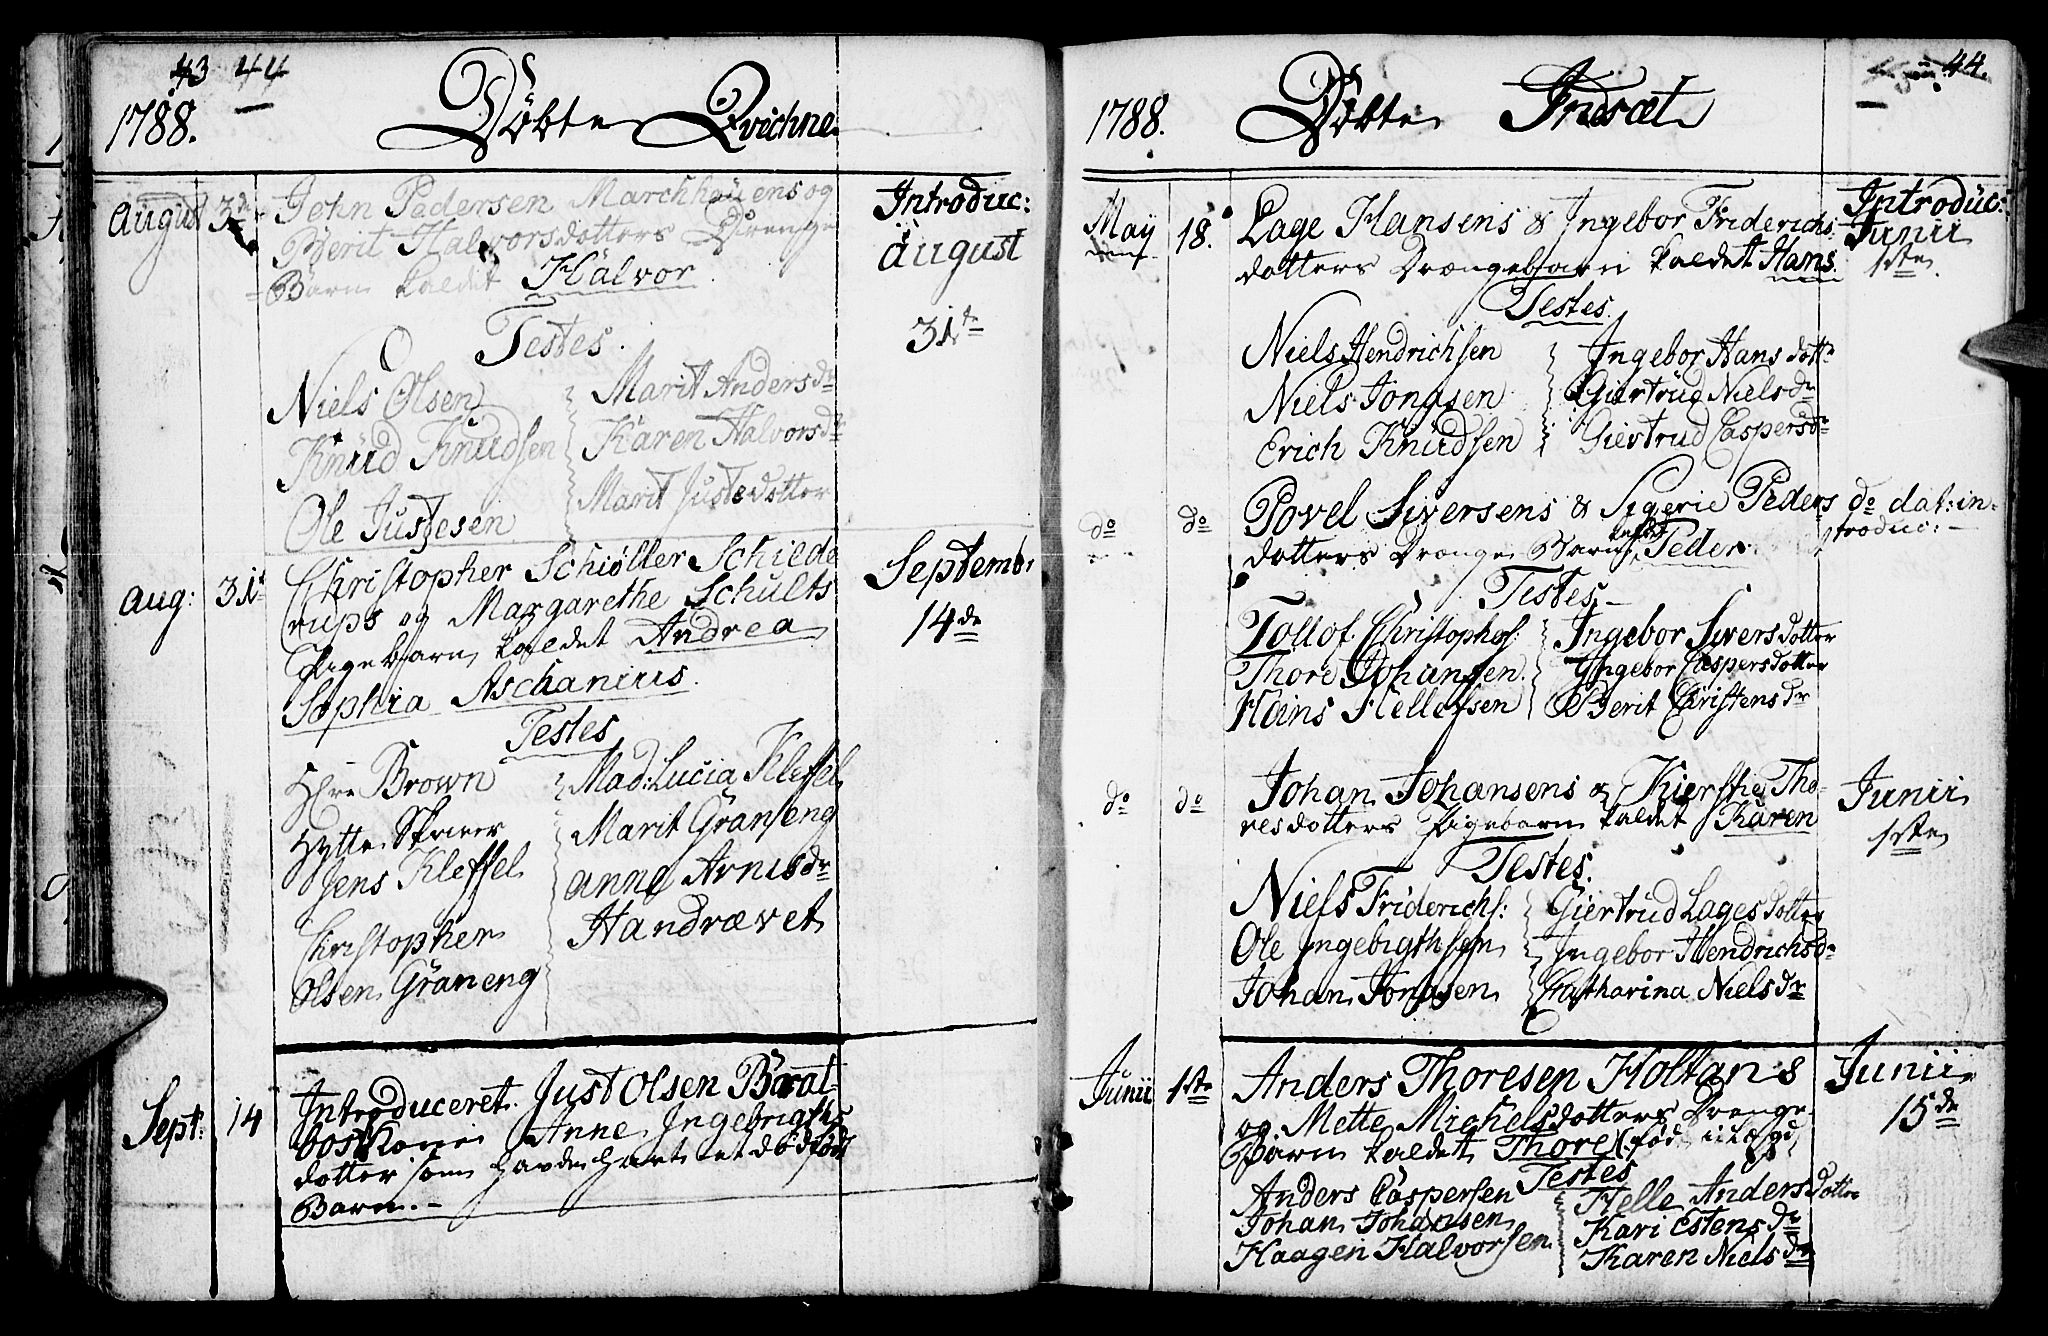 43 44
1788. Döbte Qvichne
August 3de John Pedersen Marchhøuens og
Berit Halvorsdotters Drenge
Barn kaldet Halvor.
Introduc:
August
31te
Testes.
Niels Olsen Marit Andersdr
Knud Knudsen Karen Halvorsdr
Ole Justesen Marit Justesdotter
Aug: 31te Christopher Schiøller Schilde
rups og Margarethe Schults
Pigebarn kaldet Andrea
Sophia Aschanius.
Septemb:
14de
Testes
Hr Brown Mad: Lucia Kleffel
Hytte Skriver Marit Gränseng
Jens Kleffel Anne Arnesdr
Christopher Handrævet
Olsen Gräneng
Sept: 14 Introduceret Just Olsen Baat
bos Kone Anne Ingebrigths
dotter som havde havt et dødfødt
Barn.-
44.
1788. Döbte Indsæt
May 18. Lage Hansens & Ingebor Friderichs
dotters Drængebarn kaldet Hans.
Introduc:
Junii
1ste
Testes.
Niels Hendrichsen Ingebor Hansdottr
Niels Jonasen Giertrud Nielsdr
Erich Knudsen Giertrud Caspersdr
do do Povel Siversens & Sigerie Peders
dotters Drænge Barn kaldet Peder
do dat: in-
troduc:-
Testes-
Tollof Christophs: Ingebor Siversdotter
Thore Johansen. Ingebor Caspersdotter
Hans Hellefsen Berit Christensdr
do do Johan Johansens & Kierstie Tho-
resdotters Pigebarn kaldet Karen
Junii
1ste
Testes.
Niels Friderichs: Giertrud Lagesdotter
Ole Ingebrigthsen Ingebor Hendrichsdr
Johan Jonasen Catharina Nielsdr
Junii 1ste Anders Thoresen Holtans
og Mette Michelsdotters Drenge-
Barn kaldet Thore
Junii
15de
Testes
Anders Caspersen Helle Andersdotter
Johan Johansen Kari Estensdr
Haagen Halvorsen Karen Nielsdr